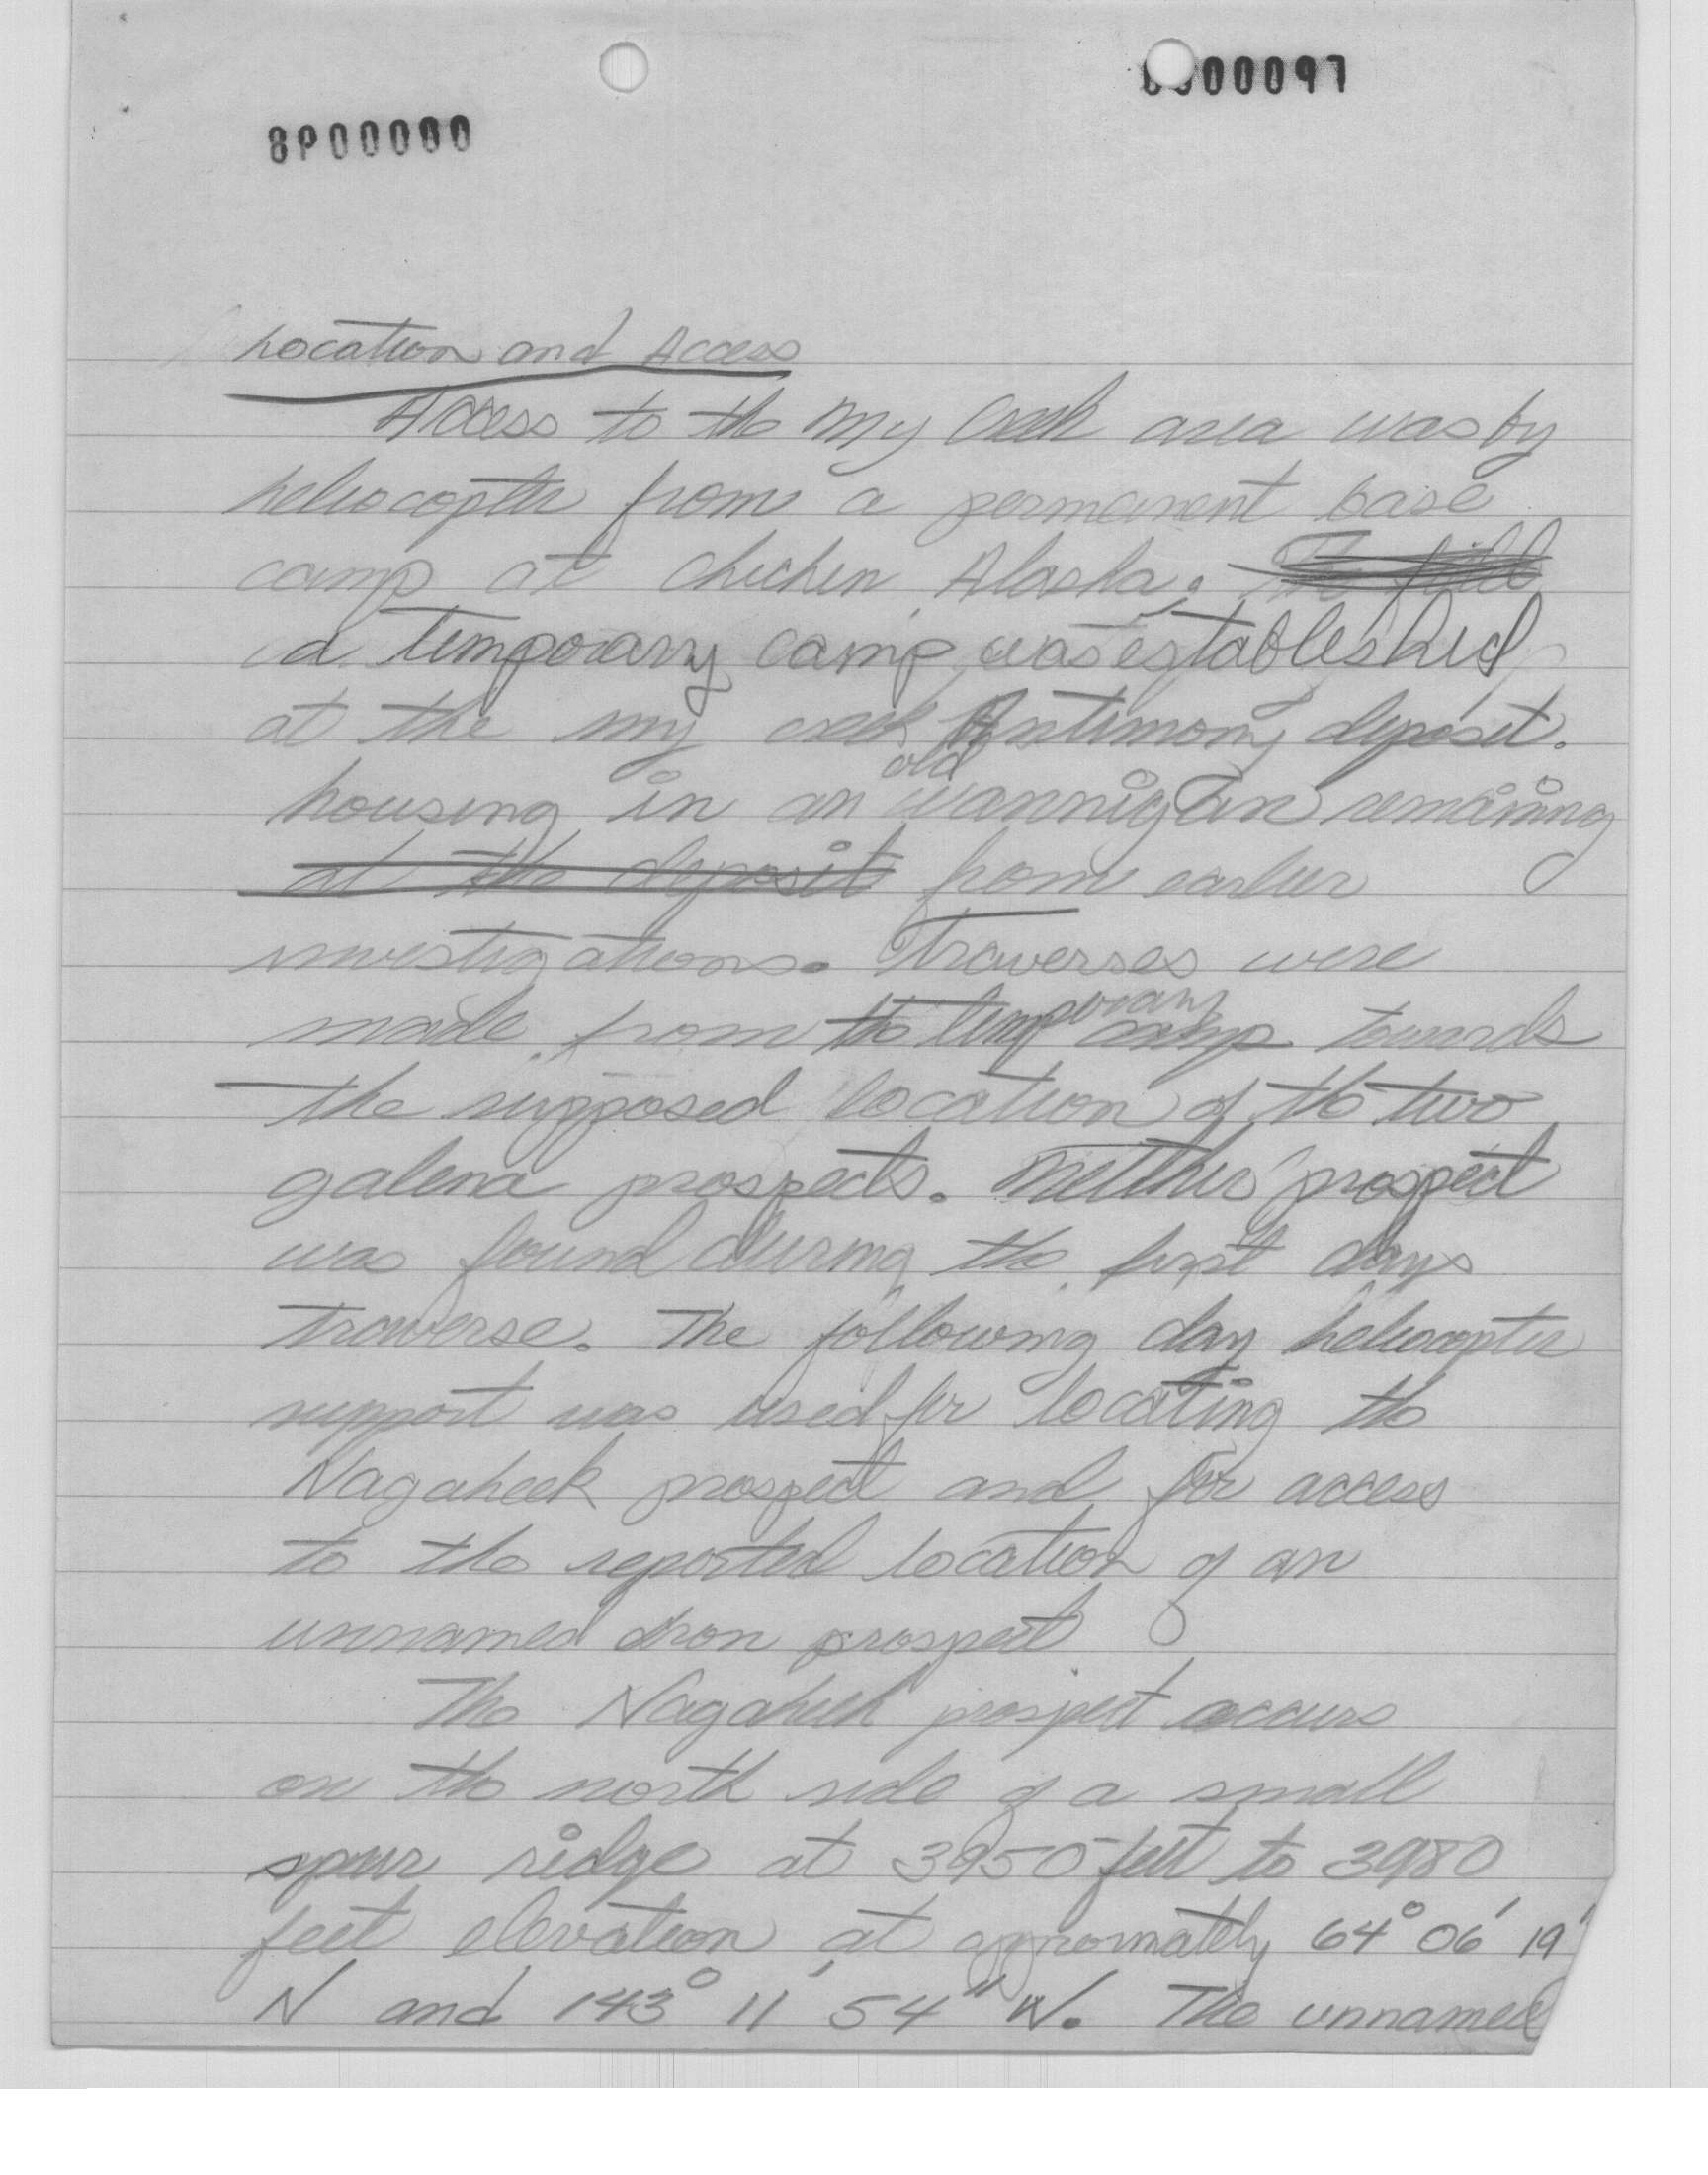 0000097
8P00000
Location and Access
Access to the My Creek area was by
heliocopter from a permanent base
camp at Chicken, Alaska. ~~The field~~
a temporary camp was established
at the my creek Antimony deposit.
housing in an old wannigan remaining
~~at the deposit~~ from earlier
investigations. Traverses were
made from the temporary camp towards
the supposed location of the two
galena prospects. Neither prospect
was found during the first days
traverse. The following day heliocopter
support was used for locating the
Nagaheek prospect and for access
to the reported location of an
unnamed iron prospect
The Nagaheek prospect occurs
on the north side of a small
spur ridge at 3950 feet to 3980
feet elevation at approximately 64° 06' 19"
N and 143° 11' 54" W. The unnamed